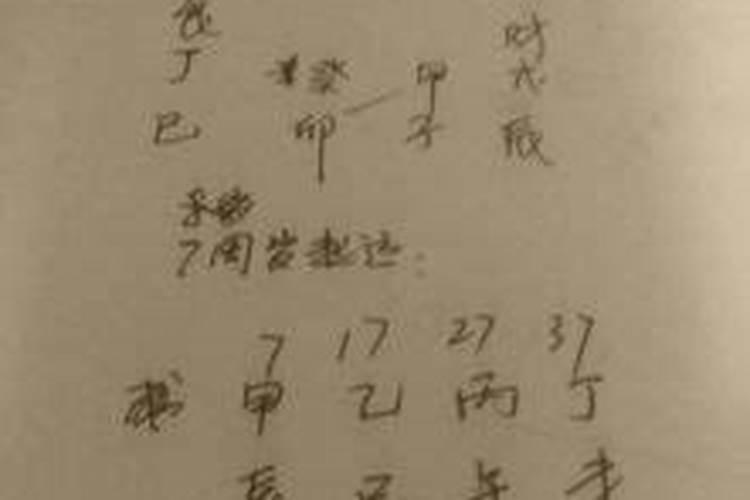 财
丁 癸 甲 戊
巳 卯 子 辰
7周岁起运:
7 17 27 37
甲 乙 丙 丁
辰 巳 午 未